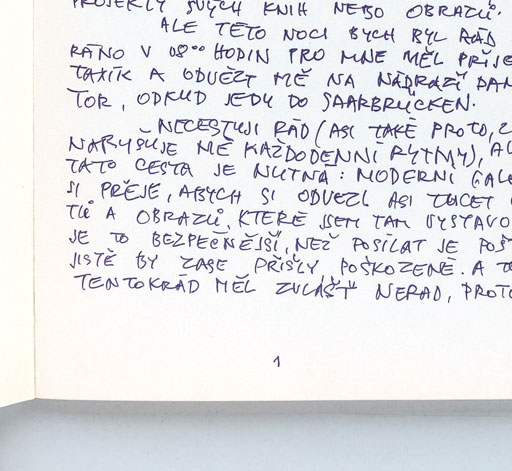 PROJEKTY SVÝCH KNIH NEBO OBRAZŮ.
ALE TÉTO NOCI BYCH BYL RÁD
RÁNO V 08°° HODIN PRO MNE MĚL PŘIJE
TAXIK A ODVÉZT MĚ NA NÁDRAŽÍ DAM
TOR, ODKUD JEDU DO SAARBRÜCKEN.
NECESTUJI RÁD (ASI TAKÉ PROTO, Ž
NARUŠUJE MÉ KAŽDODENNÍ RYTMY), AL
TATO CESTA JE NUTNÁ: MODERNÍ GALE
SI PŘEJE, ABYCH SI ODVEZL ASI TUCET
TŮ A OBRAZŮ, KTERÉ JSEM TAM VYSTAVO
JE TO BEZPEČNĚJŠÍ, NEŽ POSÍLAT JE POŠ
JISTĚ BY ZASE PŘIŠLY POŠKOZENÉ. A T
TENTOKRÁD MĚL ZVLÁŠŤ NERAD, PROTO
1